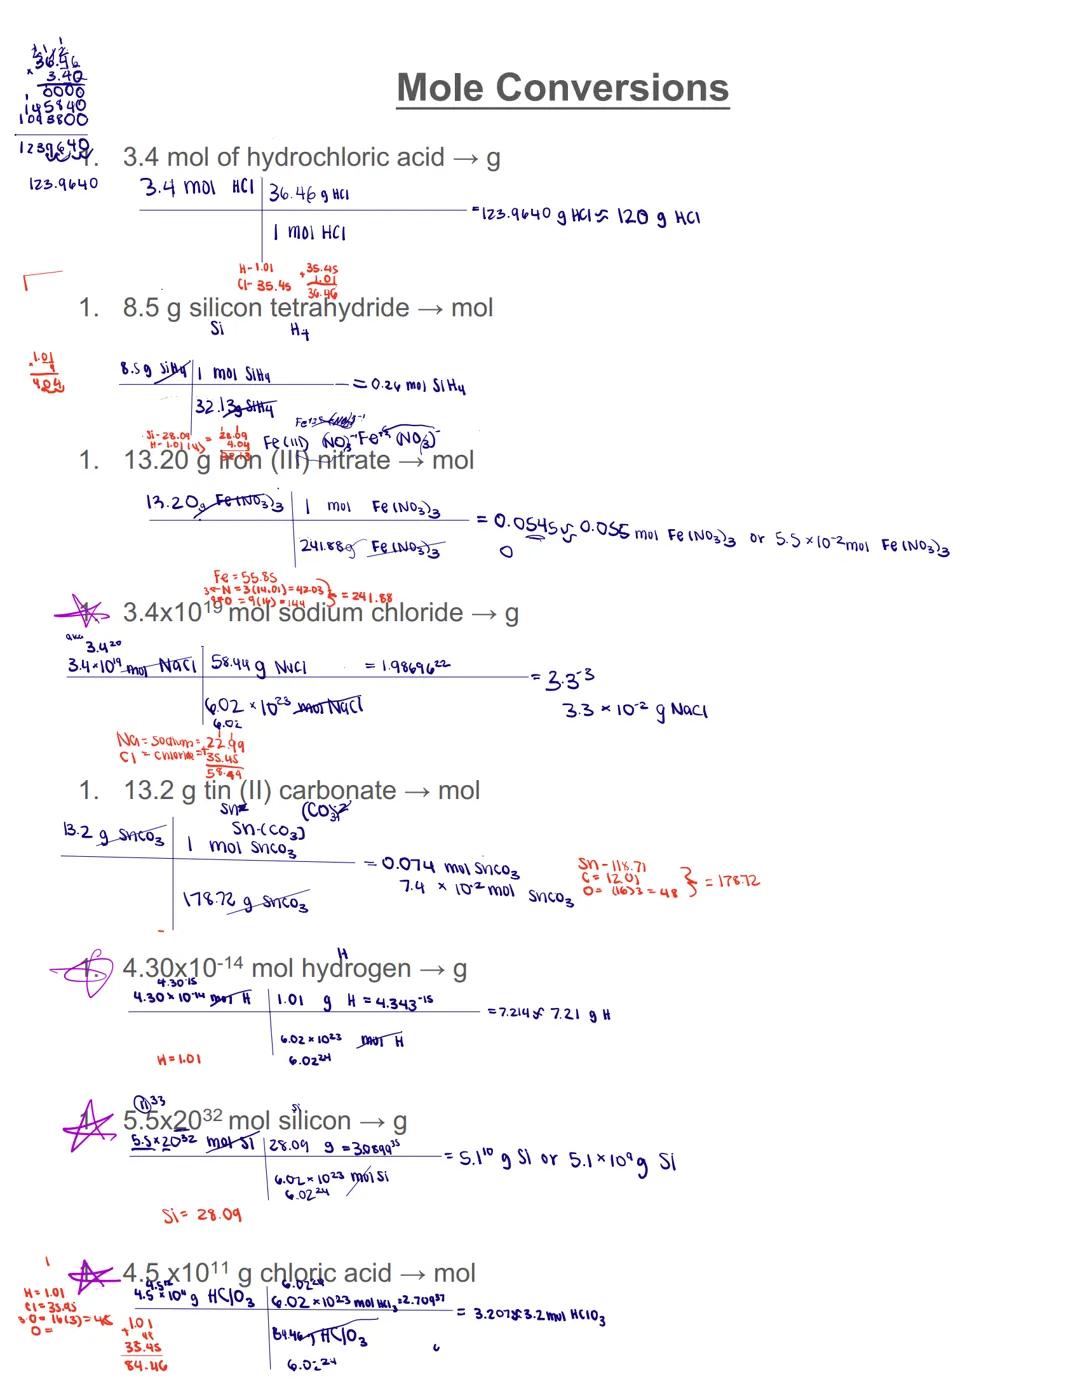 Mole Conversions
36.46
× 3.40
0000
145840
1093800
1239640
123.9640
1. 3.4 mol of hydrochloric acid → g
3.4 mol HCl | 36.46 g HCl
1 mol HCl
= 123.9640 g HCl ≈ 120 g HCl
H - 1.01
Cl - 35.45
35.45
+ 1.01
36.46
1. 8.5 g silicon tetrahydride → mol
Si H4
1.01
4.04
8.5 g SiH4 | 1 mol SiH4
32.13 g SiH4
= 0.26 mol SiH4
Si - 28.09
H - 1.01(4)
= 28.09
4.04
Fe(III) (NO3)⁻ Fe⁺³ (NO3)⁻
1. 13.20 g iron (III) nitrate → mol
13.20 g Fe(NO3)3 | 1 mol Fe(NO3)3
241.88 g Fe(NO3)3
= 0.0545 ≈ 0.055 mol Fe(NO3)3 or 5.5 × 10⁻² mol Fe(NO3)3
Fe = 55.85
N = 3(14.01) = 42.03
O = 9(16) = 144
= 241.88
1. 3.4x10¹⁹ mol sodium chloride → g
aka 3.4²⁰
3.4 × 10¹⁹ mol NaCl | 58.44 g NaCl = 1.98696²²
6.02 × 10²³ mol NaCl
6.02
= 3.3⁻³
3.3 × 10⁻² g NaCl
Na = sodium = 22.99
Cl = chloride = + 35.45
58.44
1. 13.2 g tin (II) carbonate → mol
Sn (CO3)⁻²
Sn-(CO3)
13.2 g SnCO3 | 1 mol SnCO3
178.72 g SnCO3
= 0.074 mol SnCO3
7.4 × 10⁻² mol SnCO3
Sn - 118.71
C = 12.01
O = (16)3 = 48
= 178.72
1. 4.30x10⁻¹⁴ mol hydrogen → g
H
4.30⁻¹⁵
4.30 × 10⁻¹⁴ mol H | 1.01 g H = 4.343⁻¹⁵
6.02 × 10²³ mol H
6.02²⁴
= 7.214 ≈ 7.21 g H
H = 1.01
1. 5.5x20³² mol silicon → g
11³³
Si
5.5 × 20³² mol Si | 28.09 g = 3.0899³⁵
6.02 × 10²³ mol Si
6.02²⁴
= 5.1¹⁰ g Si or 5.1 × 10⁹ g Si
Si = 28.09
1. 4.5 x10¹¹ g chloric acid → mol
4.5¹² 6.02²⁴
4.5 × 10¹¹ g HClO3 | 6.02 × 10²³ mol HCl3 = 2.709³⁷
84.46 g HClO3
6.02²⁴
= 3.207 ≈ 3.2 mol HClO3
H = 1.01
Cl = 35.45
O = 16(3) = 48
O =
1.01
+ 48
35.45
84.46